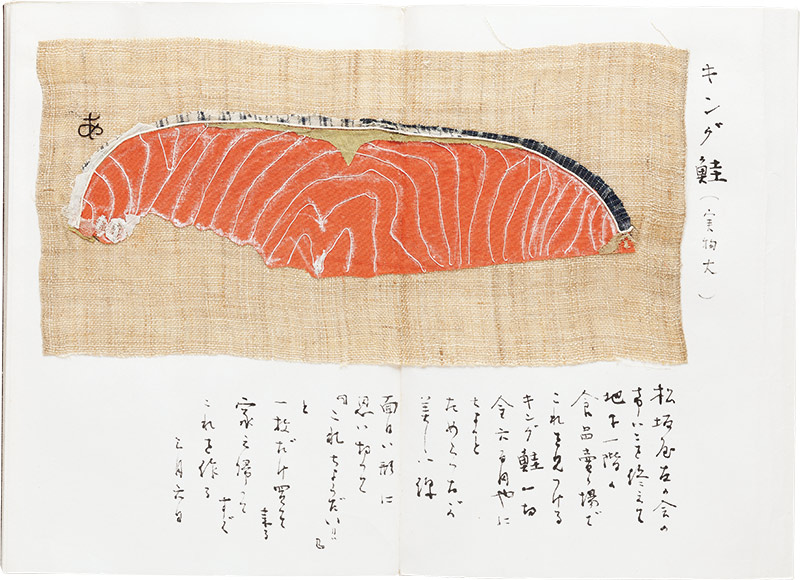 キング鮭(実物大)
あ
松坂屋友の会の
けいこを終えて
地下一階の
食品賣り場で
これを見つける
キング鮭一切
金六百円也に
ちょっと
ためらったが
美しい線
面白い形に
思い切って
「これちょうだい!!」
と
一枚だけ買って来る
家に帰ってすぐ
これを作る
三月六日